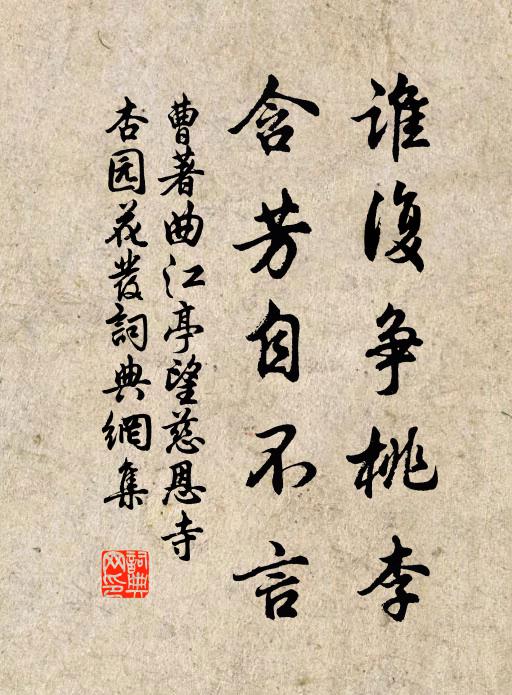 谁复争桃李
含芳自不言
曹著曲江亭望慈恩寺
杏园花發詞典網集
詞典
网印